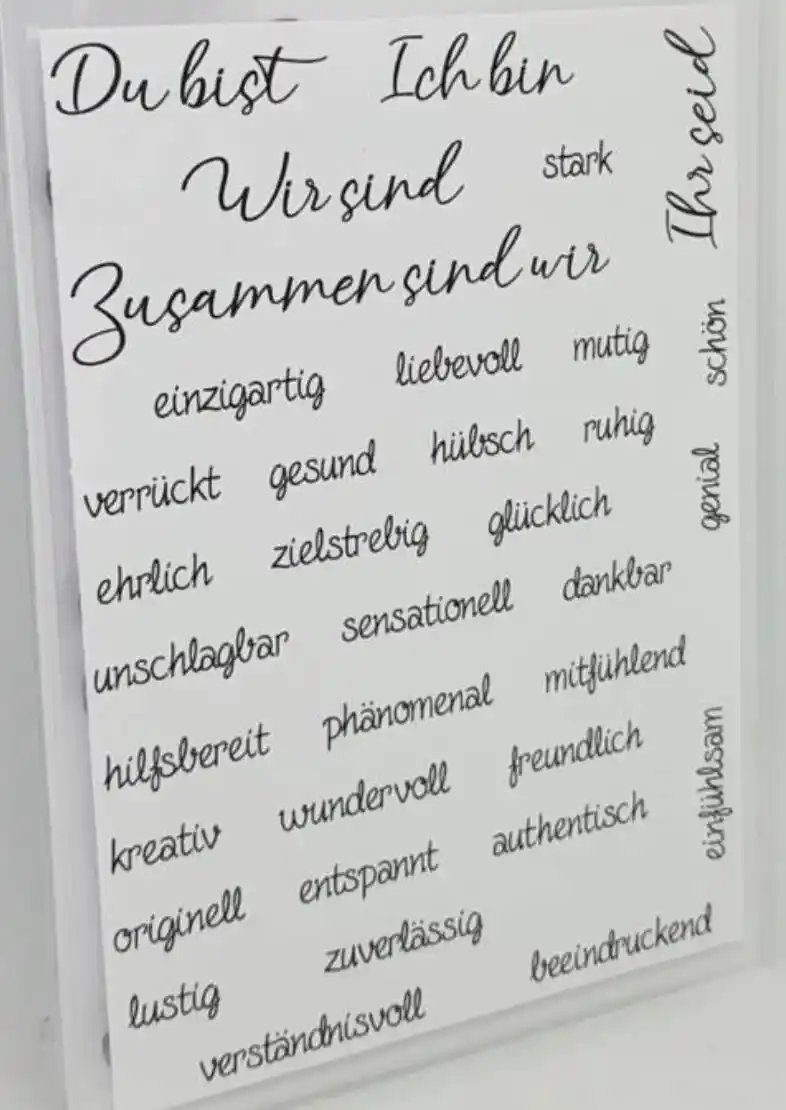 Du bist Ich bin
Wir sind stark
Zusammen sind wir
einzigartig liebevoll mutig
verrückt gesund hübsch ruhig
ehrlich zielstrebig glücklich
unschlagbar sensationell dankbar
hilfsbereit phänomenal mitfühlend
kreativ wundervoll freundlich
originell entspannt authentisch
lustig zuverlässig beeindruckend
verständnisvoll
Ihr seid
schön
genial
einfühlsam